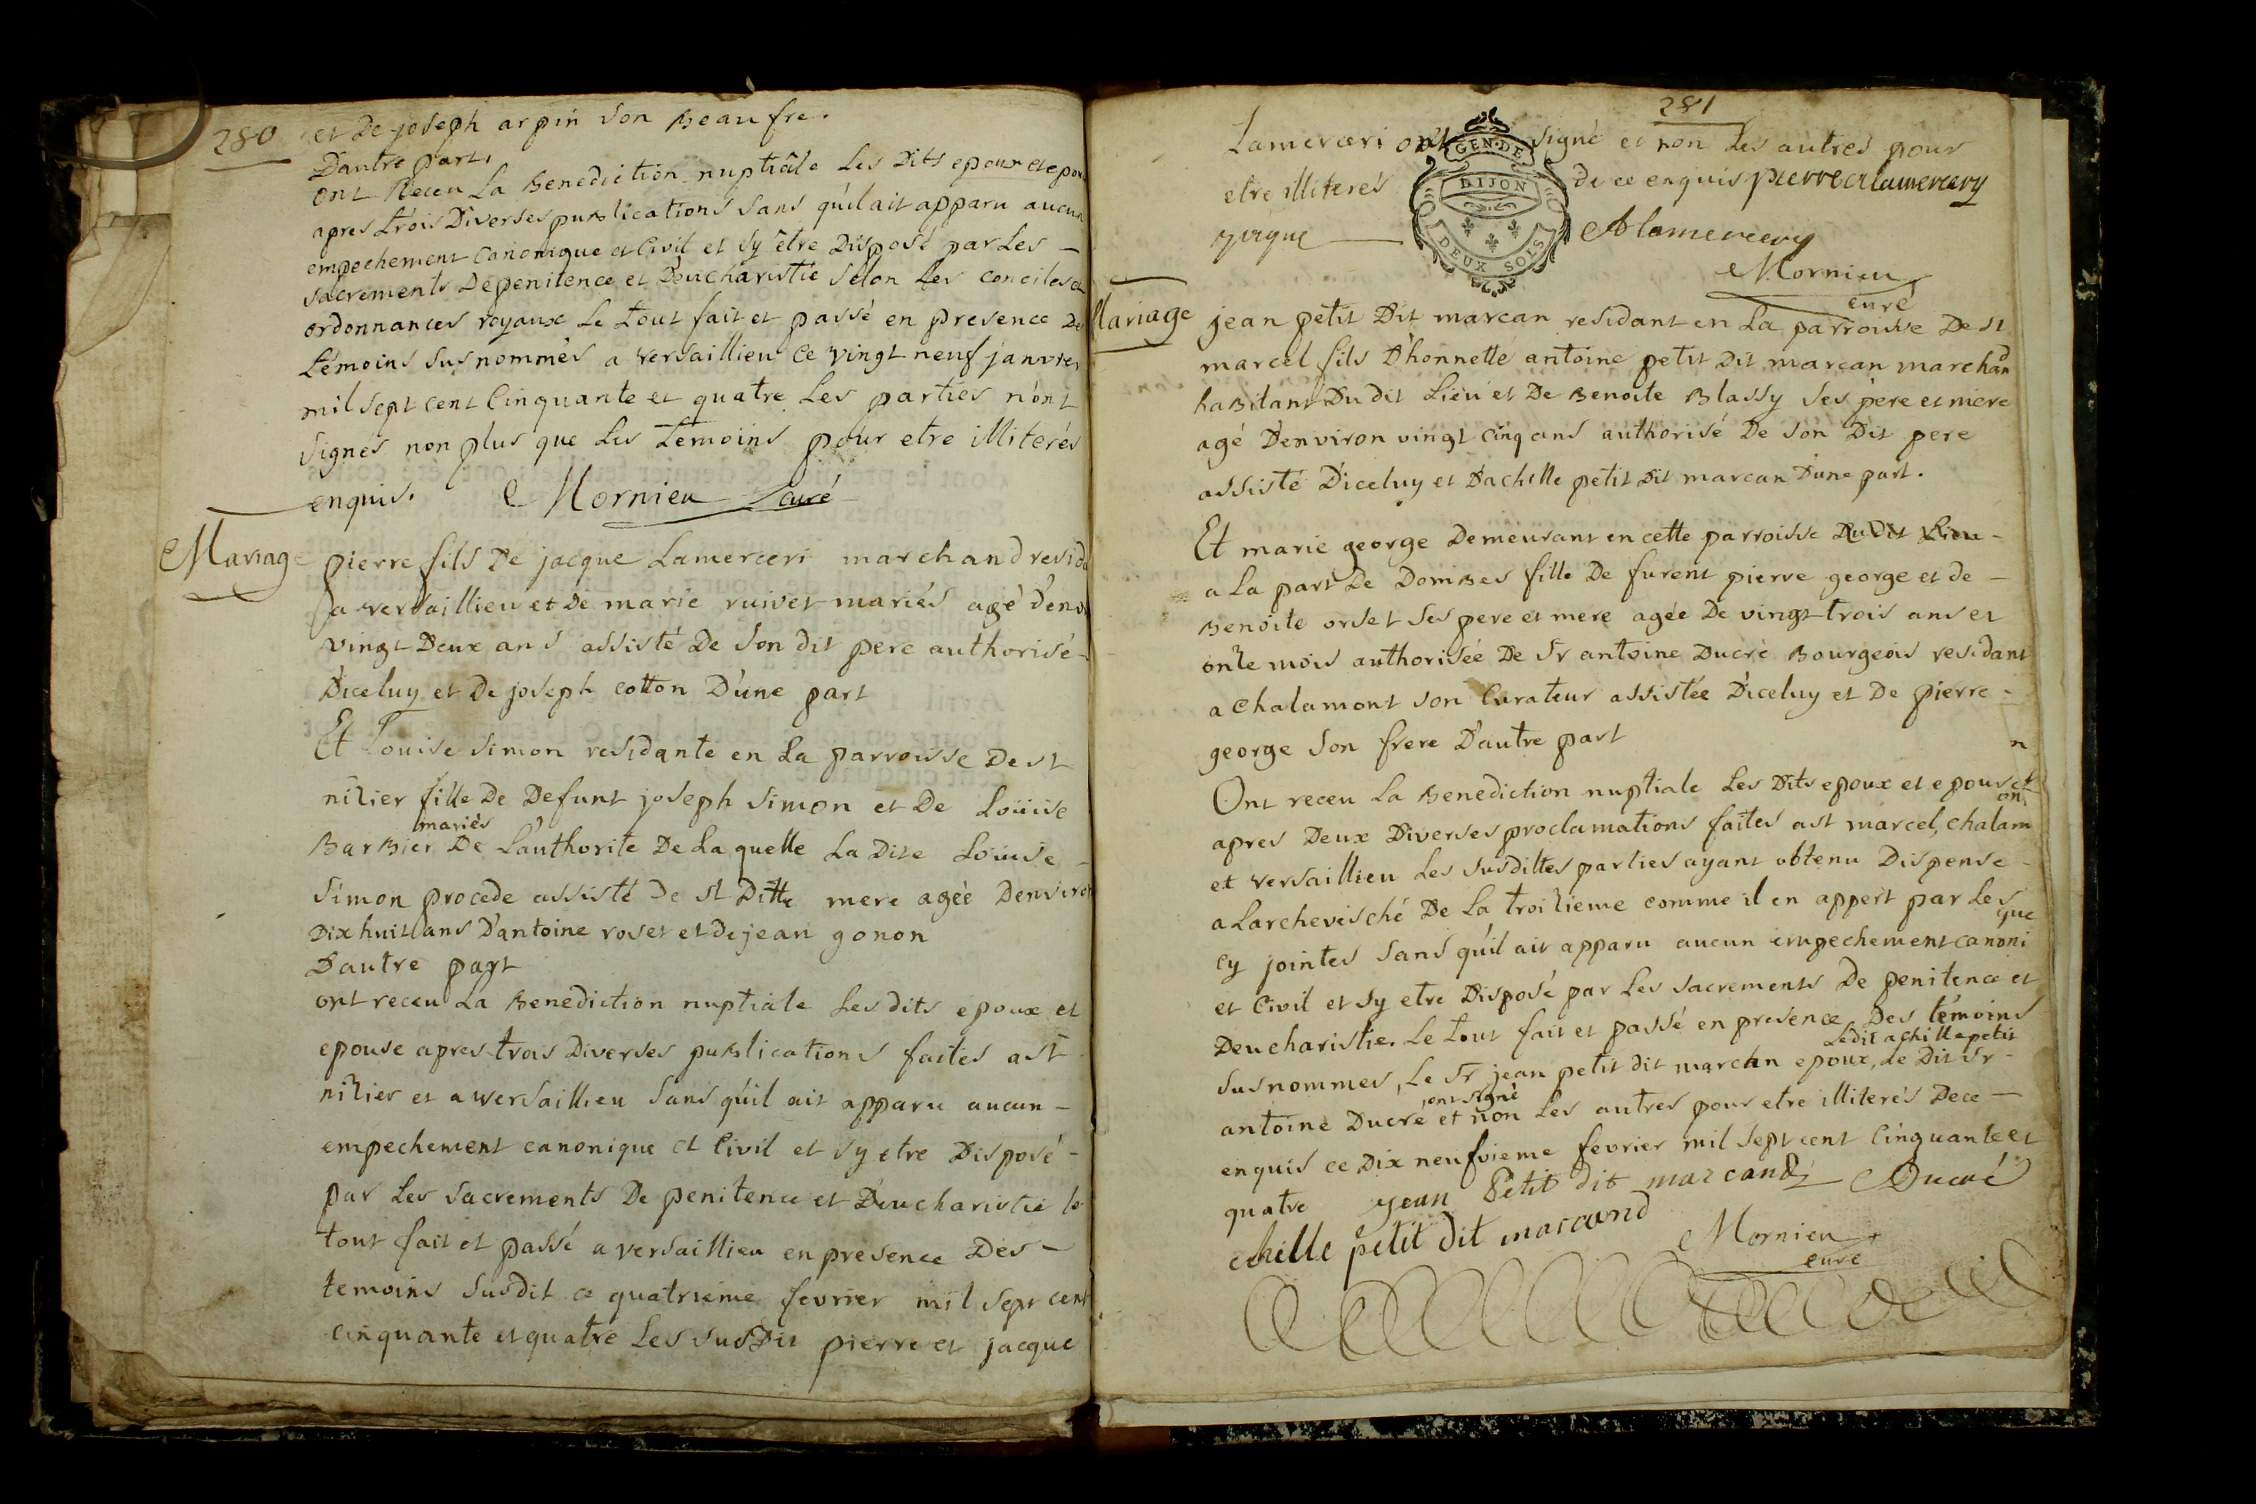 280
et De joseph arpin son Beaufre.
D'autre part,
ont Receu La Benediction nuptiâle Les Dits epoux et epou
apres trois Diverses publications sans qu'il ait apparu aucun
empechement Canonique et Civil et sy être Disposé par Les
sacrements De penitence et D'eucharistie selon Les conciles et
ordonnances royaux Le tout fait et passé en presence De
témoins susnommés a versaillieu ce vingt neuf janvier
mil sept cent Cinquante et quatre Les parties n'ont
signés non plus que Les témoins pour etre illiterés
enquis. Mornieu curé
Mariage
pierre fils De jacque Lamerceri marchand resid
a versaillieu et De marie ruivet mariés agé d'env
vingt Deux ans assisté De son dit pere authorisé
D'iceluy et De joseph cotton D'une part
Et Louise simon residante en La parroisse De st
nizier fille De Defunt joseph simon et De Louise
mariés
BarBier De L'authorite De La quelle La Dite Louise
simon procede assisté De st Ditte mere agée Denviron
Dix huit ans D'antoine roset et de jean gonon
D'autre part
ont receu La Benediction nuptiale Les dits epoux et
epouse apres trois Diverses publications faites a st
nizier et a versaillieu sans qu'il ait apparu aucun
empechement canonique et Civil et sy etre Disposé
par Les sacrements De penitence et D'eucharistie le
tout fait et passé a versaillieu en presence Des
temoins susdit ce quatrieme fevrier mil sept cent
cinquante et quatre Les susDit pierre et jacque
281
Lamerceri ont signé et non Les autres pour
etre illiterés de ce enquis pierre alamercery
GEN. DE
DIJON
DEUX SOLS
Alamercery
Mornieu
curé
Mariage
jean petit Dit marcan residant en La parroisse De st
marcel fils D'honnette antoine petit Dit marcan marchand
haBitant Du dit Lieu et De Benoite Blassy ses pere et mere
agé D'environ vingt cinq ans authorisé De son Dit pere
assisté D'iceluy et D'achille petit Dit marcan D'une part.
Et marie george Demeurant en cette parroisse Du Dit Lieu
a La part De DomBes fille De furent pierre george et de
Benoite orset ses pere et mere agée De vingt trois ans et
onze mois authorisée De sr antoine Ducré Bourgeois residant
a Chalamont son Curateur assistée D'iceluy et De pierre
george son frere D'autre part
Ont receu La Benediction nuptiale Les Dits epoux et epouse
apres Deux Diverses proclamations faites a st marcel, chalamont
et versaillieu Les susdittes parties ayant obtenu Dispense
a Larchevisché De La troisieme comme il en appert par Les
cy jointes sans qu'il ait apparu aucun empechement canonique
et Civil et sy etre Disposé par Les sacrements De penitence et
Deucharistie. Le tout fait et passé en presence Des témoins
Ledit achille petit
susnommes, Le sr jean petit dit marcan epoux, Le Dit sr
ont signé
antoine Ducré et non Les autres pour etre illiterés Dece
enquis ce Dix neufvieme fevrier mil sept cent Cinquante et
quatre jean Petit dit marcand Ducré
chille petit dit marcand Mornieu
curé